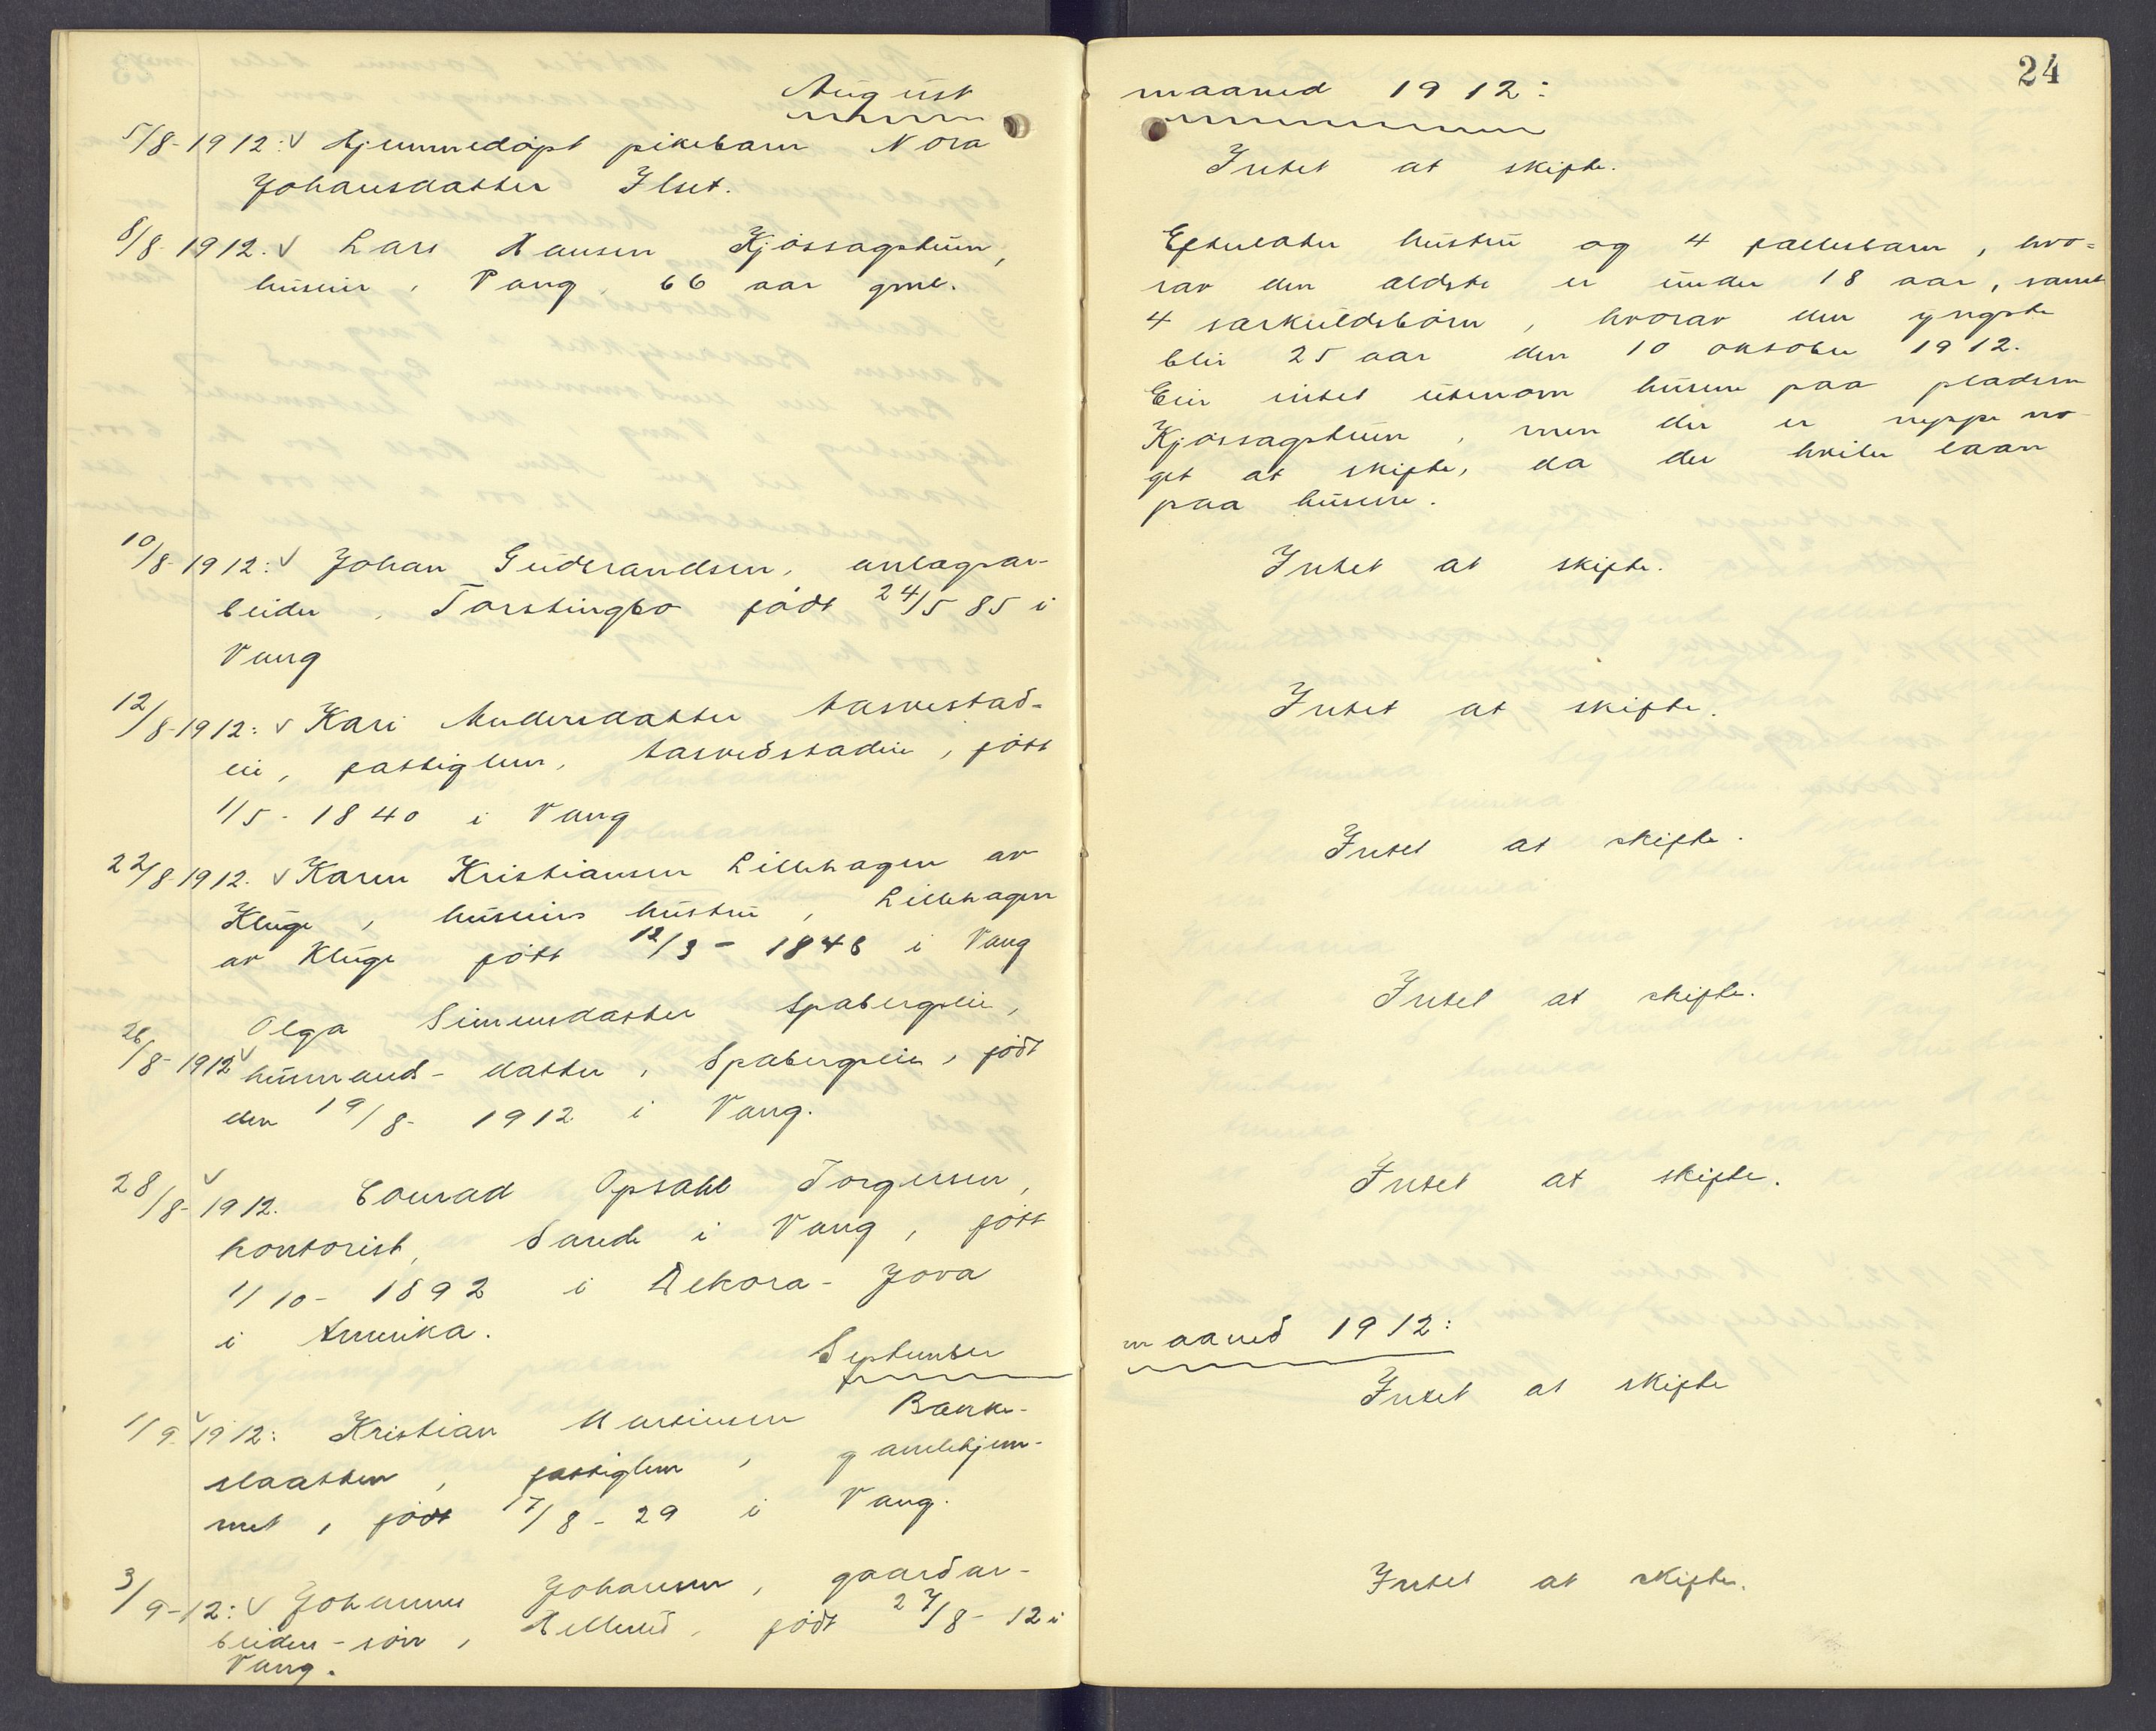 24
August
5/8-1912: v Hjemmedøpt pikebarn Nora
Johansdatter Ilset.
8/8-1912. v Lars Hansen Kjøssagstuen,
huseier, Vang, 66 aar gml.
10/8-1912: v Johan Gudbrandsen, anlægsar-
beider, Torstingbo født 24/5 85 i
Vang
12/8-1912: v Kari Andersdatter Aasvestad-
eie, fattiglem, Aasvedstadeie, født
1/5-1840 i Vang
22/8-1912. v Karen Kristiansen Lillehagen av
Kluge, huseiers hustru, Lillehagen
av Kluge født 12/3-1848 i Vang
Olga Simensdatter Spabergseie,
26/8-1912 v husmands-datter, Spabergseie, født
den 19/8-1912 i Vang.
28/8-1912. v Conrad Opsahl Torgersen,
kontorist, Sande i Vang, født
1/10-1892 i Dekora-Jova
i Amerika.
September
1/9-1912: v Kristian Martinsen Banke-
slaatten, fattiglem, gamlehjem-
met, født 17/8-29 i Vang.
3/9-12: v Johannes Johansen, gaardar-
beiders-søn, Hellerud, født 27/8-12 i
Vang.
maaned 1912:
Intet at skifte.
Efterlater hustru og 4 fællesbarn, hvo=
rav den ældste er under 18 aar, samt
4 særkuldsbørn, hvorav den yngste
blir 25 aar den 10 oktober 1912.
Eier intet utenom husene paa pladsen
Kjøssagstuen, men der er neppe no-
get at skifte, da der hviler laan
paa husene.
Intet at skifte.
Intet at skifte.
Intet at skifte.
Intet at skifte.
Intet at skifte.
maaned 1912:
Intet at skifte
Intet at skifte.